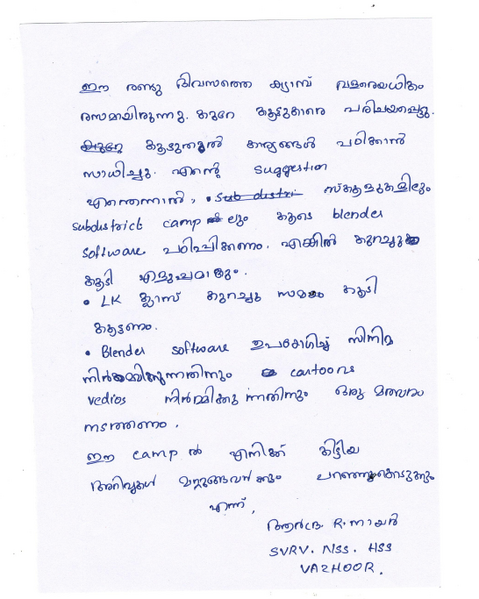 ഈ രണ്ടു ദിവസത്തെ ക്യാമ്പ് വളരെയധികം
രസമായിരുന്നു. കുറേ കൂട്ടുകാരെ പരിചയപ്പെട്ടു.
കുറേ കൂടുതൽ കാര്യങ്ങൾ പഠിക്കാൻ
സാധിച്ചു. എന്റെ suggestion
എന്തെന്നാൽ, • sub distri സ്കൂളുകളിലും
subdistrict camp ലും കൂടെ blender
software പഠിപ്പിക്കണം. എങ്കിൽ കുറച്ചു
കൂടി എളുപ്പമാകും.
• LK ക്ലാസ് കുറച്ചു സമയം കൂടി
കൂട്ടണം.
• Blender software ഉപയോഗിച്ച് സിനിമ
നിർമ്മിക്കുന്നതിനും cartoons
vedios നിർമ്മിക്കുന്നതിനും ഒരു മത്സരം
നടത്തണം.
ഈ camp ൽ എനിക്ക് കിട്ടിയ
അറിവുകൾ മറ്റുള്ളവർക്കും പറഞ്ഞുകൊടുക്കും
എന്ന്,
R. നായർ
SVRV. NSS. HSS
VAZHOOR.